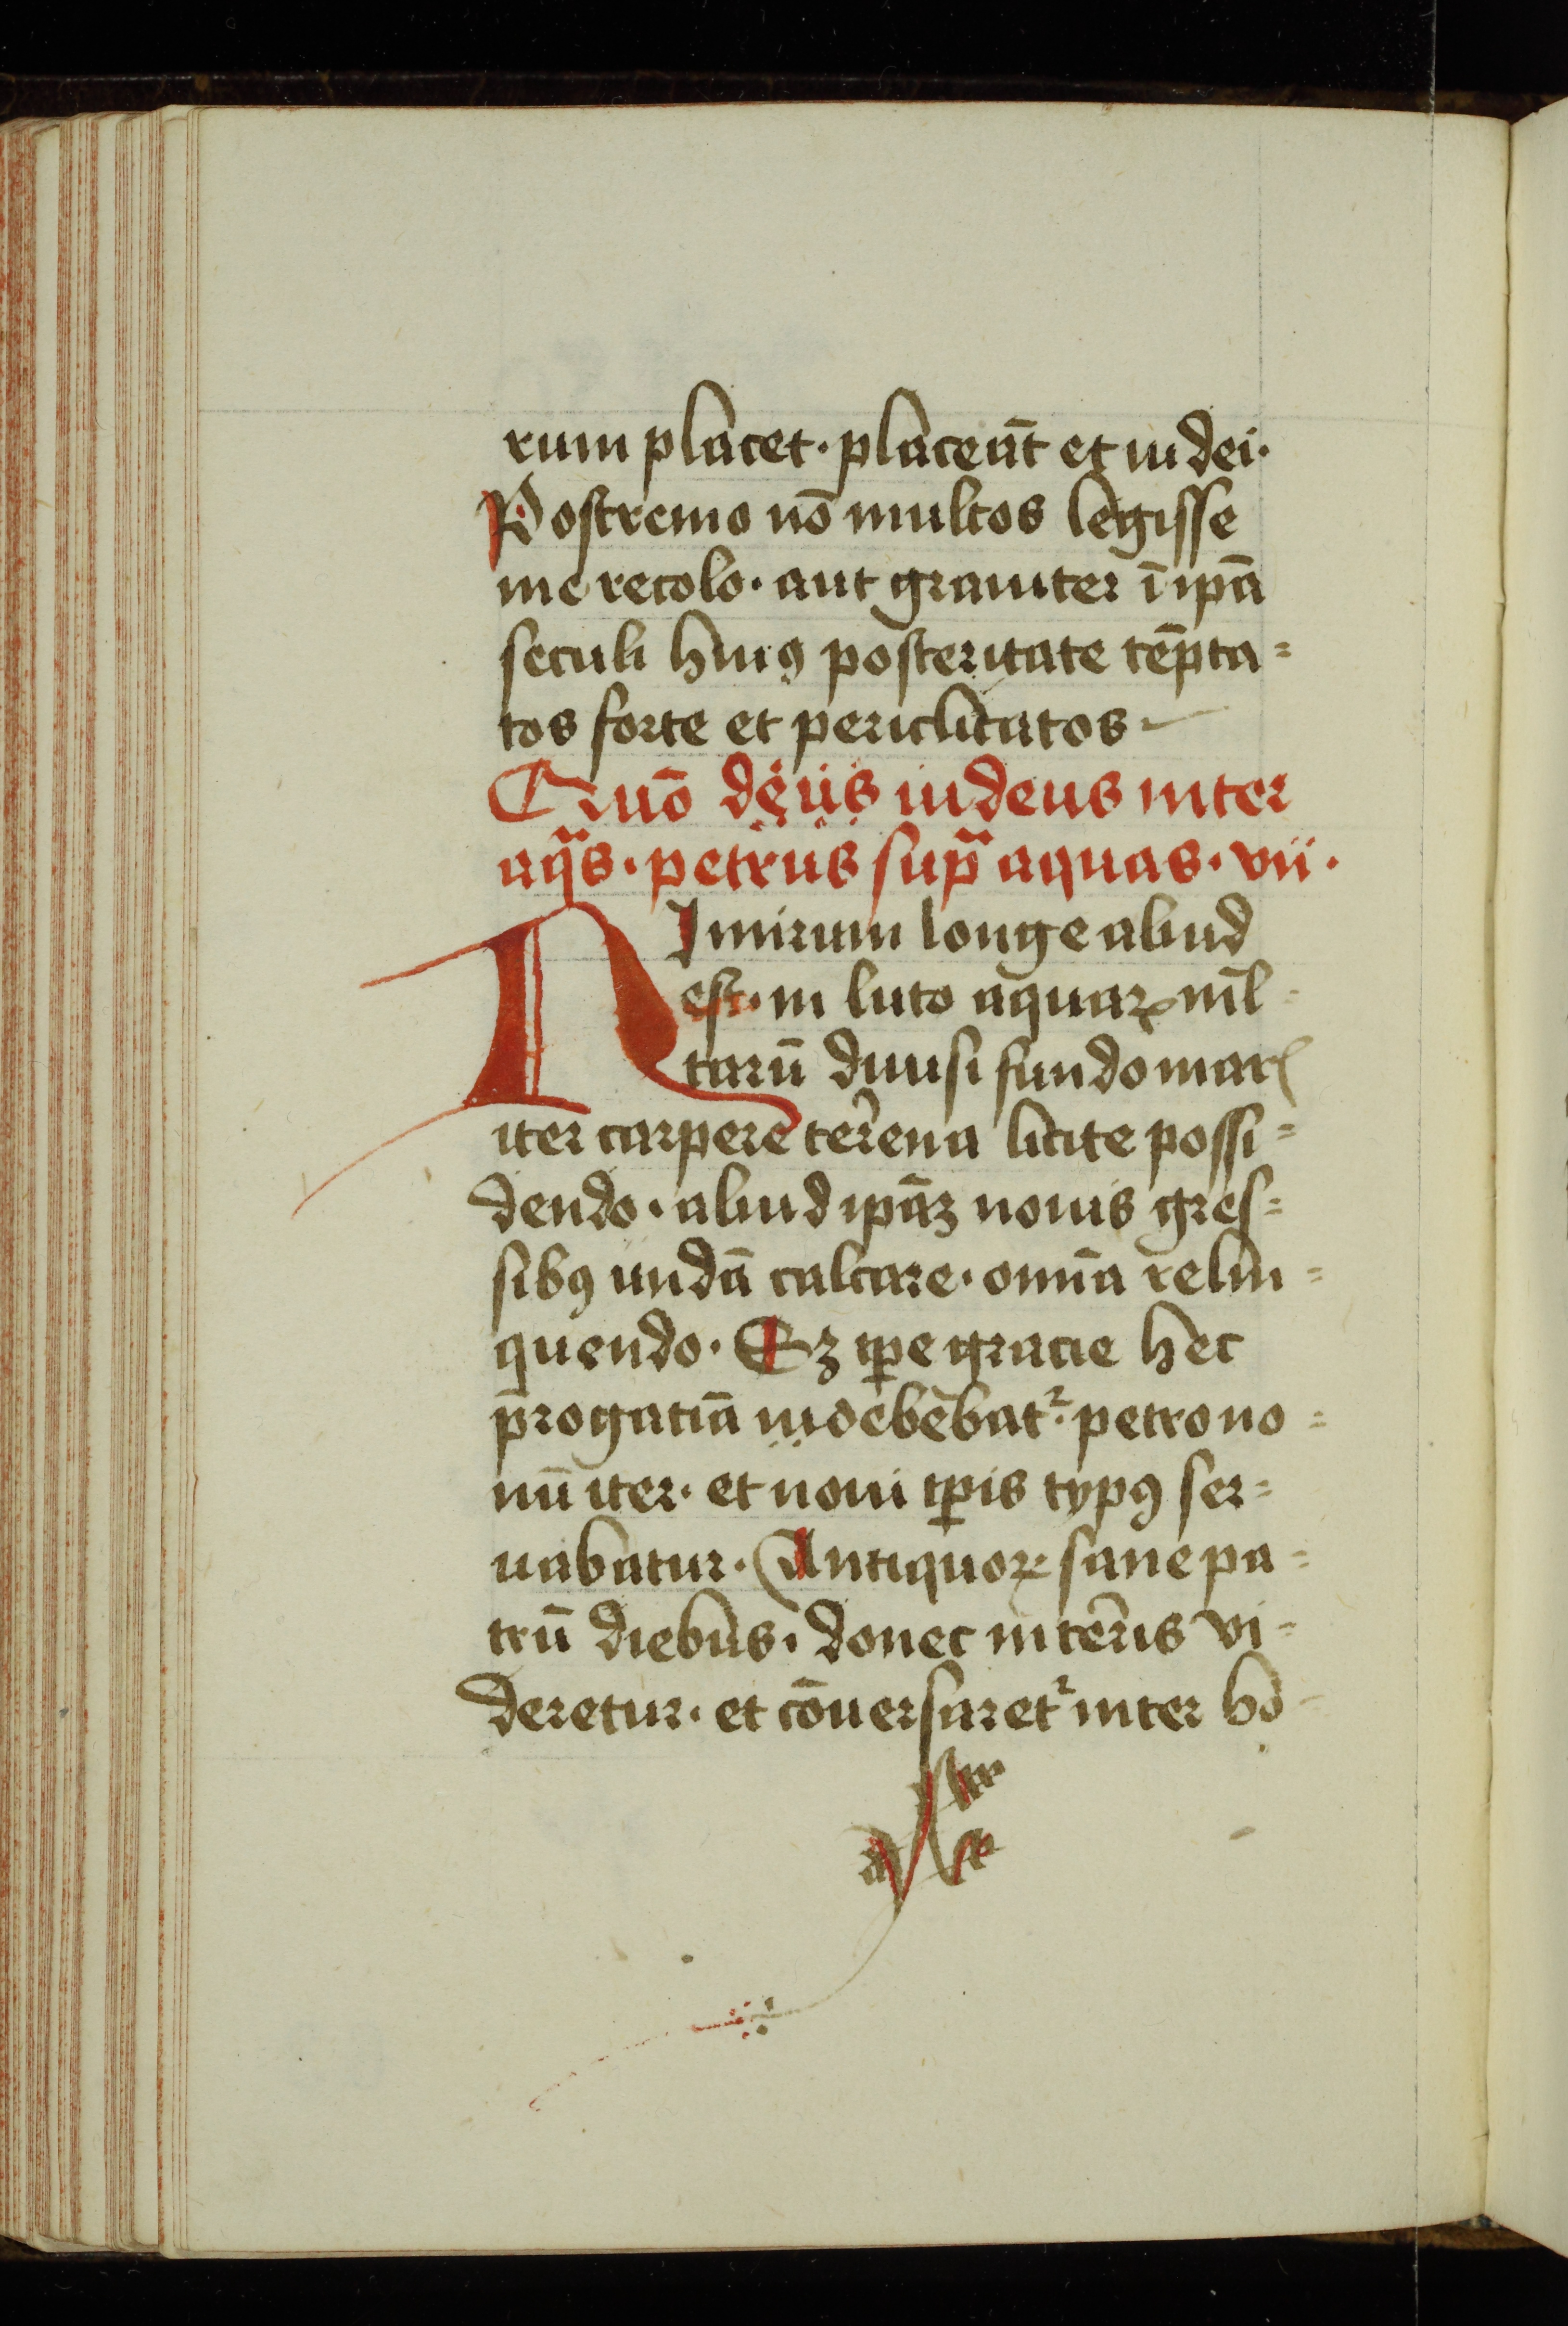 rum placet · placeāt et iudei ·
Postremo nō multos legisse
me recolo · aut grauiter ī ipā
seculi huiꝰ posteritate tēpta=
tos forte et periclitatos
Quō iudeus inter
aqᵃs · petrus supᵃ aquas · vii ·
Nimirum longe aliud
est · in luto aquaꝝ ml̄=
tarū diuisi fundo maris
iter carpere terrena licite possi=
dendo · aliud ipāꝫ nouis gres=
sibꝰ undā calcare · om̄ia relin=
quendo · Sꝫ tp̄e gracie hec
p̄rogatiā debebatᷣ · petro no=
uū iter · et noui tp̄is typꝰ ser=
uabatur · Antiquoꝝ sane pa=
trū diebus · donec in terris vi=
deretur · et cōuersaretᷣ inter ho=